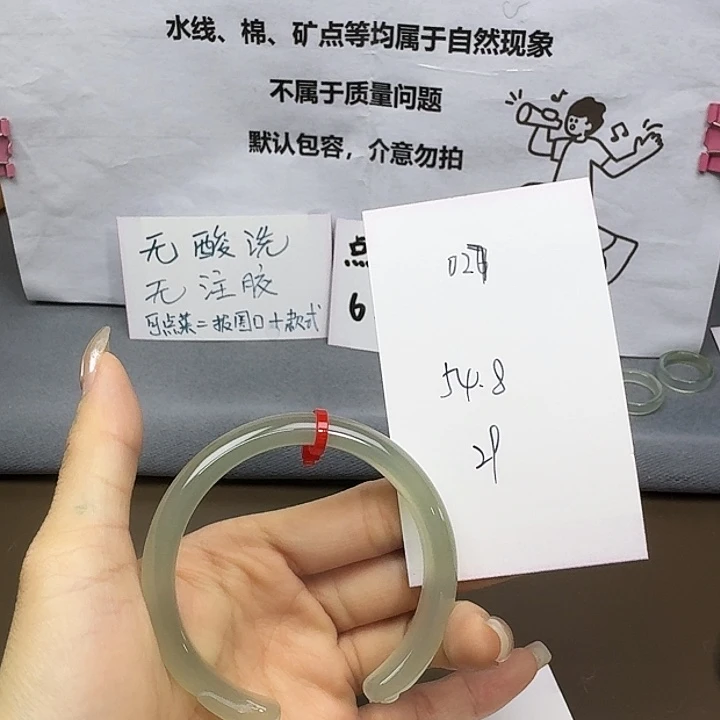 水线、棉、矿点等均属于自然现象
不属于质量问题
默认包容，介意勿拍
无酸洗
无注胶
可点菜=报圈口+款式
点
6
54.8